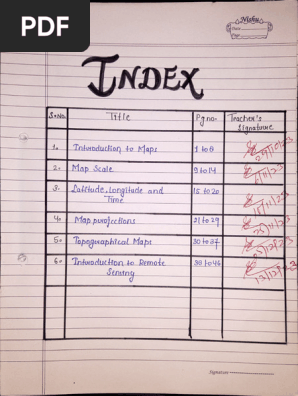 PDF
Nisha
Date
Page
INDEX
S.No. Title Pg no. Teacher's Signature
1. Introduction to Maps 1 to 8
2. Map Scale 9 to 14
3. Latitude, Longitude and Time 15 to 20
4. Map projections 21 to 29
5. Topographical Maps 30 to 37
6. Introduction to Remote Sensing 38 to 46
Signature